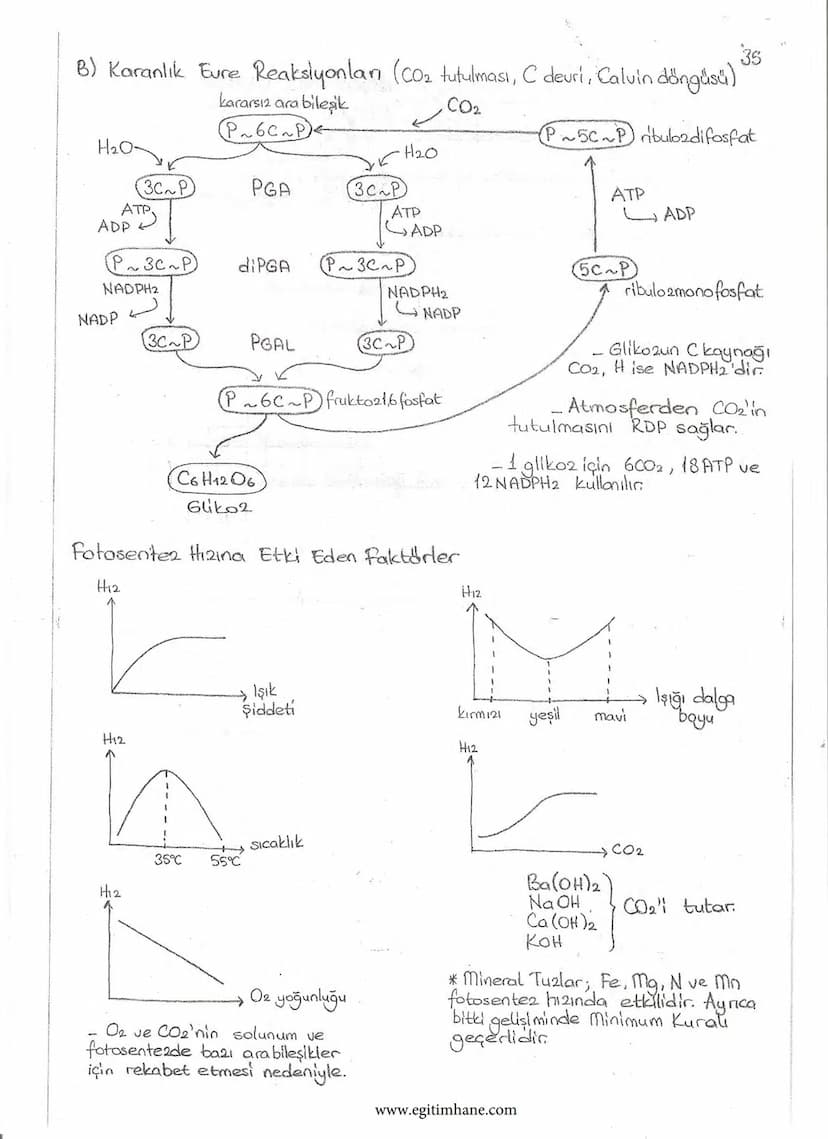 35
B) Karanlık Evre Reaksiyonları (CO2 tutulması, C devri, Calvin döngüsü)
kararsız ara bileşik
CO2
P~6C~P
P~5C~P ribulozdifosfat
H2O
H2O
3C~P PGA 3C~P
ATP
ADP
ATP
ADP
ATP
ADP
P~3C~P diPGA P~3C~P
5C~P
ribulozmonofosfat
NADPH2
NADP
NADPH2
NADP
3C~P PGAL 3C~P
P~6C~P fruktoz1,6fosfat
C6H12O6
Glikoz
- Glikozun C kaynağı
CO2, H ise NADPH2'dir.
- Atmosferden CO2'in
tutulmasını RDP sağlar.
- 1 glikoz için 6CO2, 18ATP ve
12NADPH2 kullanılır.
Fotosentez Hızına Etki Eden Faktörler
Hız
Işık
Şiddeti
Hız
kırmızı yeşil mavi
Işığı dalga
boyu
Hız
35°C 55°C
sıcaklık
Hız
CO2
Ba(OH)2
NaOH
Ca(OH)2
KOH
CO2'i tutar.
Hız
O2 yoğunluğu
- O2 ve CO2'nin solunum ve
fotosentezde bazı arabileşikler
için rekabet etmesi nedeniyle.
* Mineral Tuzlar; Fe, Mg, N ve Mn
fotosentez hızında etkilidir. Ayrıca
bitki gelişiminde Minimum Kuralı
geçerlidir.
www.egitimhane.com